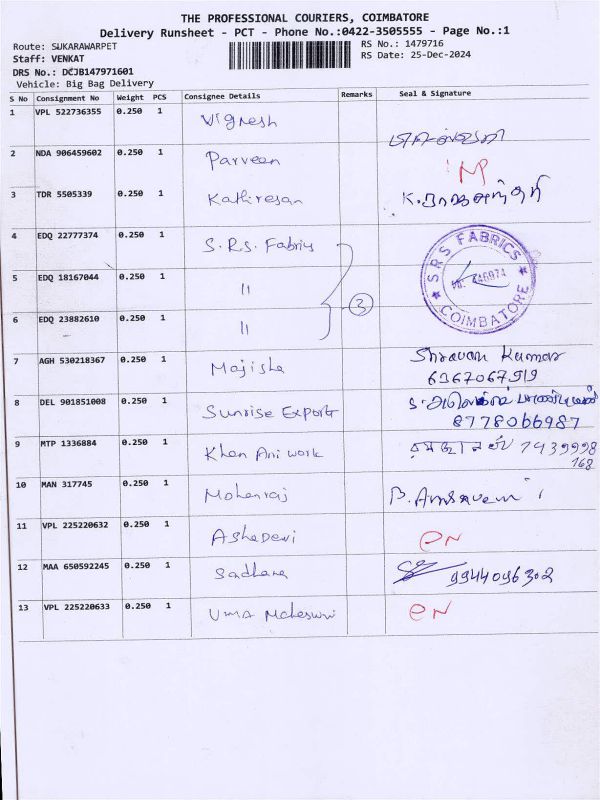 THE PROFESSIONAL COURIERS, COIMBATORE
Delivery Runsheet - PCT - Phone No.:0422-3505555 - Page No.:1
Route: SUKARAWARPET RS No.: 1479716
Staff: VENKAT RS Date: 25-Dec-2024
DRS No.: DCJB147971601
Vehicle: Big Bag Delivery
S No Consignment No Weight PCS Consignee Details Remarks Seal & Signature
1 VPL 522736355 0.250 1 Vignesh
2 NDA 906459602 0.250 1 Parveen
3 TDR 5505339 0.250 1 Kathiresan
4 EDQ 22777374 0.250 1 S.R.S. Fabrics
5 EDQ 18167044 0.250 1 11
6 EDQ 23882610 0.250 1 11
3
S R S FABRICS
COIMBATORE
7 AGH 530218367 0.250 1 Majisha Shravan Kumar
6367067919
8 DEL 901851008 0.250 1 Sunrise Export
8778066987
9 MTP 1336884 0.250 1 Khan Ani work 7439998
168
10 MAN 317745 0.250 1 Mohanraj
11 VPL 225220632 0.250 1 AshaDevi EN
12 MAA 650592245 0.250 1 Sadhana 9944096302
13 VPL 225220633 0.250 1 UMA Maheswri EN